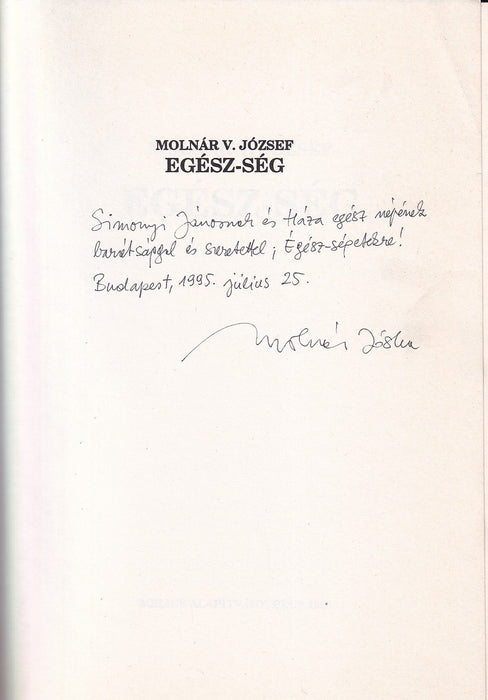 MOLNÁR V. JÓZSEF
EGÉSZ-SÉG
Simonyi Jánosnak és Háza egész népének
barátsággal és szeretettel; Egész-ségetekre!
Budapest, 1995. július 25.
Molnár Jóska